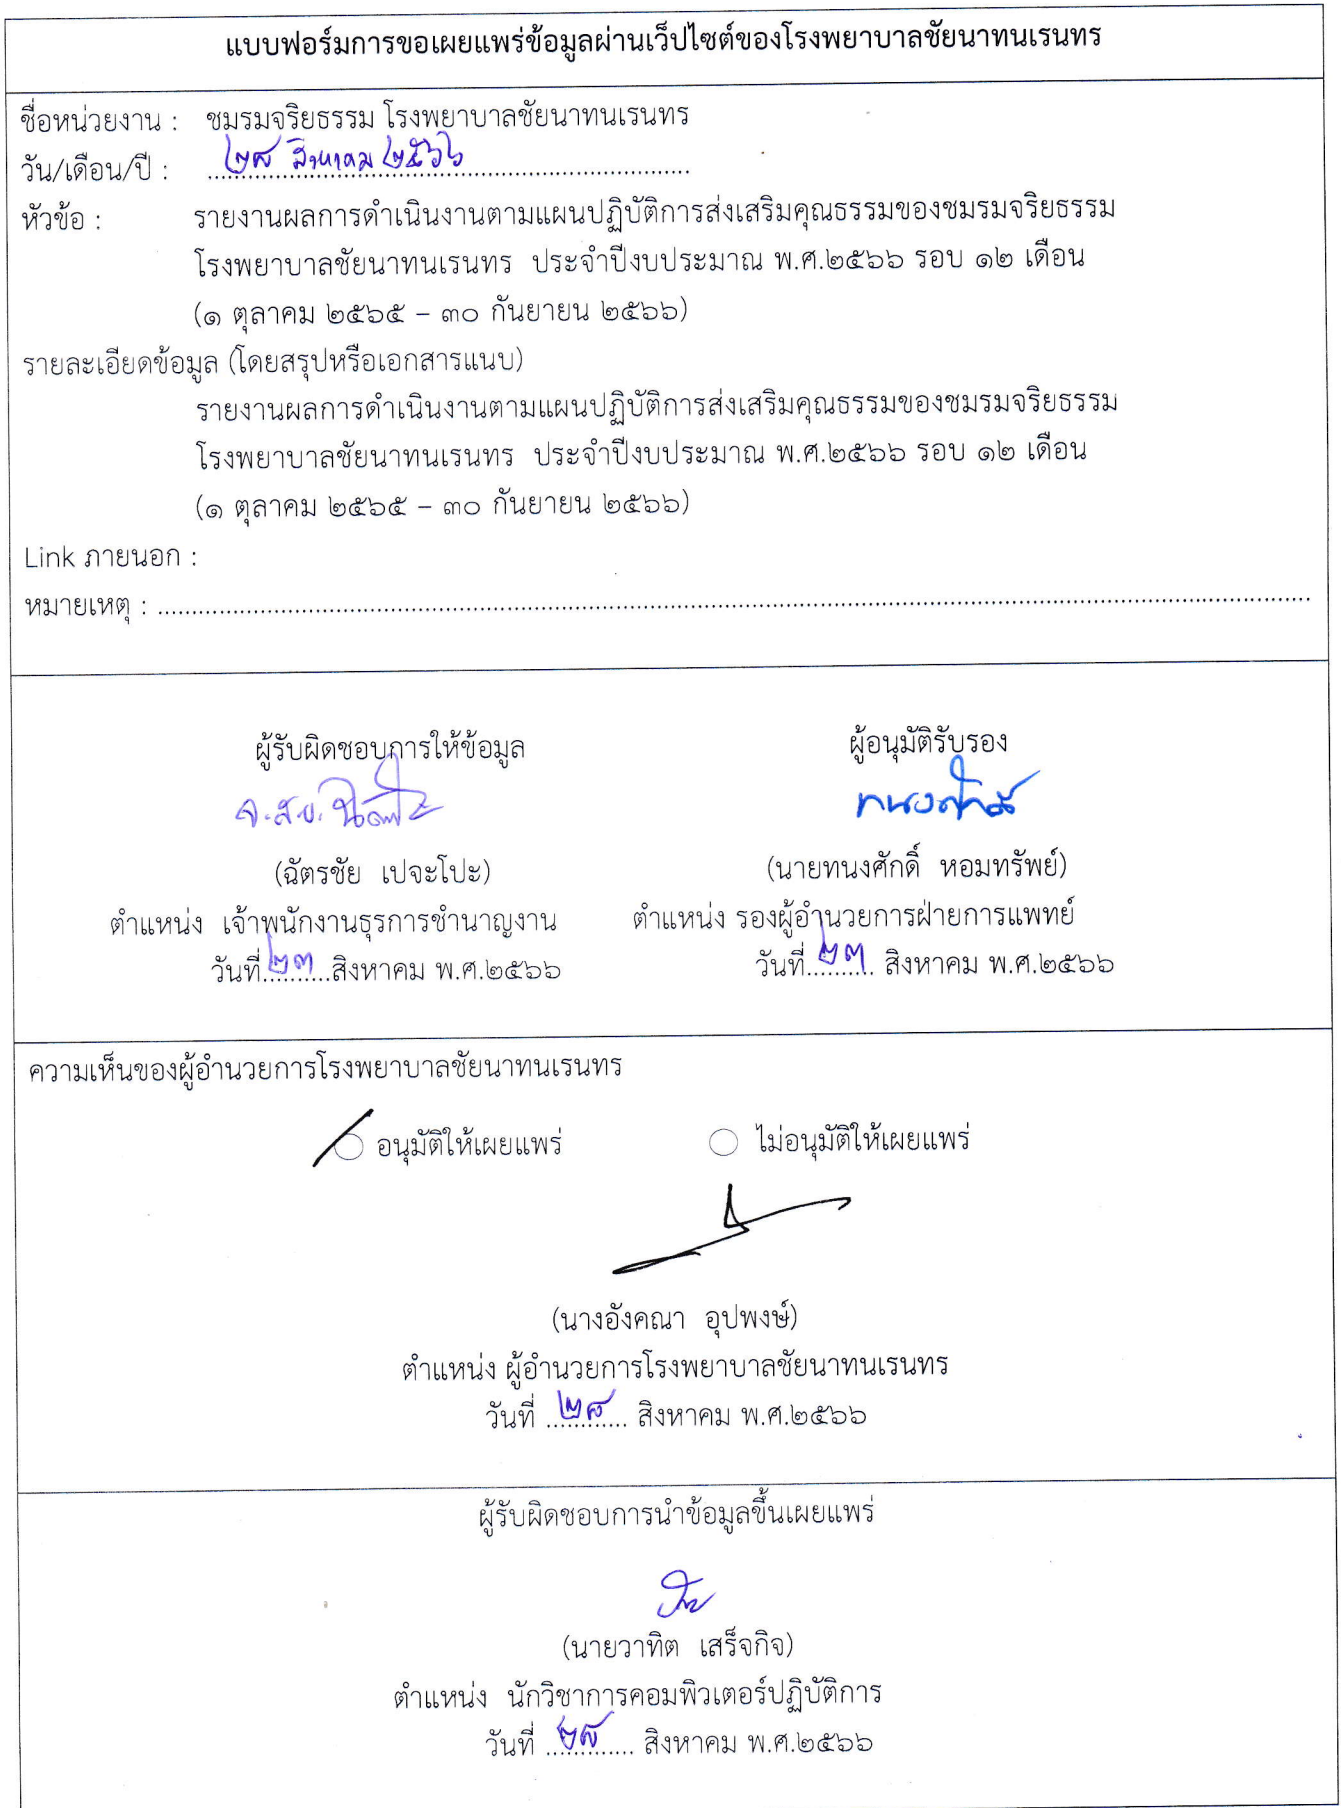 แบบฟอร์มการขอเผยแพร่ข้อมูลผ่านเว็ปไซต์ของโรงพยาบาลชัยนาทนเรนทร
ชื่อหน่วยงาน : ชมรมจริยธรรม โรงพยาบาลชัยนาทนเรนทร
วัน/เดือน/ปี : ๒๘ สิงหาคม ๒๕๖๖
หัวข้อ : รายงานผลการดำเนินงานตามแผนปฏิบัติการส่งเสริมคุณธรรมของชมรมจริยธรรม
โรงพยาบาลชัยนาทนเรนทร ประจำปีงบประมาณ พ.ศ.๒๕๖๖ รอบ ๑๒ เดือน
(๑ ตุลาคม ๒๕๖๕ – ๓๐ กันยายน ๒๕๖๖)
รายละเอียดข้อมูล (โดยสรุปหรือเอกสารแนบ)
รายงานผลการดำเนินงานตามแผนปฏิบัติการส่งเสริมคุณธรรมของชมรมจริยธรรม
โรงพยาบาลชัยนาทนเรนทร ประจำปีงบประมาณ พ.ศ.๒๕๖๖ รอบ ๑๒ เดือน
(๑ ตุลาคม ๒๕๖๕ – ๓๐ กันยายน ๒๕๖๖)
Link ภายนอก :
หมายเหตุ : ................................................................
ผู้รับผิดชอบการให้ข้อมูล ผู้อนุมัติรับรอง
จ.ส.อ. ทนงศักดิ์
(ฉัตรชัย เปจะโปะ) (นายทนงศักดิ์ หอมทรัพย์)
ตำแหน่ง เจ้าพนักงานธุรการชำนาญงาน ตำแหน่ง รองผู้อำนวยการฝ่ายการแพทย์
วันที่ ๒๓ สิงหาคม พ.ศ.๒๕๖๖ วันที่ ๒๓ สิงหาคม พ.ศ.๒๕๖๖
ความเห็นของผู้อำนวยการโรงพยาบาลชัยนาทนเรนทร
อนุมัติให้เผยแพร่ ไม่อนุมัติให้เผยแพร่
(นางอังคณา อุปพงษ์)
ตำแหน่ง ผู้อำนวยการโรงพยาบาลชัยนาทนเรนทร
วันที่ ๒๘ สิงหาคม พ.ศ.๒๕๖๖
ผู้รับผิดชอบการนำข้อมูลขึ้นเผยแพร่
(นายวาทิต เสร็จกิจ)
ตำแหน่ง นักวิชาการคอมพิวเตอร์ปฏิบัติการ
วันที่ ๒๘ สิงหาคม พ.ศ.๒๕๖๖